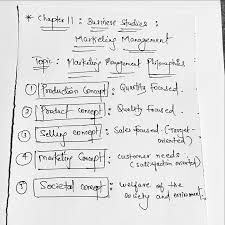 * Chapter 11 : Business Studies :
Marketing Management
Topic : Marketing Management Philosophies
① Production Concept : Quantity focused.
② Product Concept : Quality focused.
③ Selling concept : Sales focused. (Target-
oriented)
④ Marketing Concept : customer needs.
(satisfaction oriented)
⑤ Societal concept : welfare of the
society and